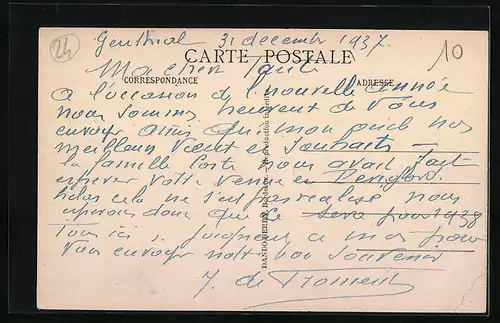 24
Genthial 31 decembre 1937.
10
CARTE POSTALE
Ma chère Tante
CORRESPONDANCE
ADRESSE
a l'occasion de l'nouvelle année
nous sommes heureux de vous
envoyer ainsi que mon oncle nos
meilleurs vœux et souhaits —
la famille Coste nous avait fait
espérer votre venue en Périgord.
hélas cela ne s'est pas réalisé nous
espérons donc que ce sera pour 1938
Tous ici se joignent a moi pour
vous envoyer notre bon souvenir
J. de Froment
Reproduction interdite